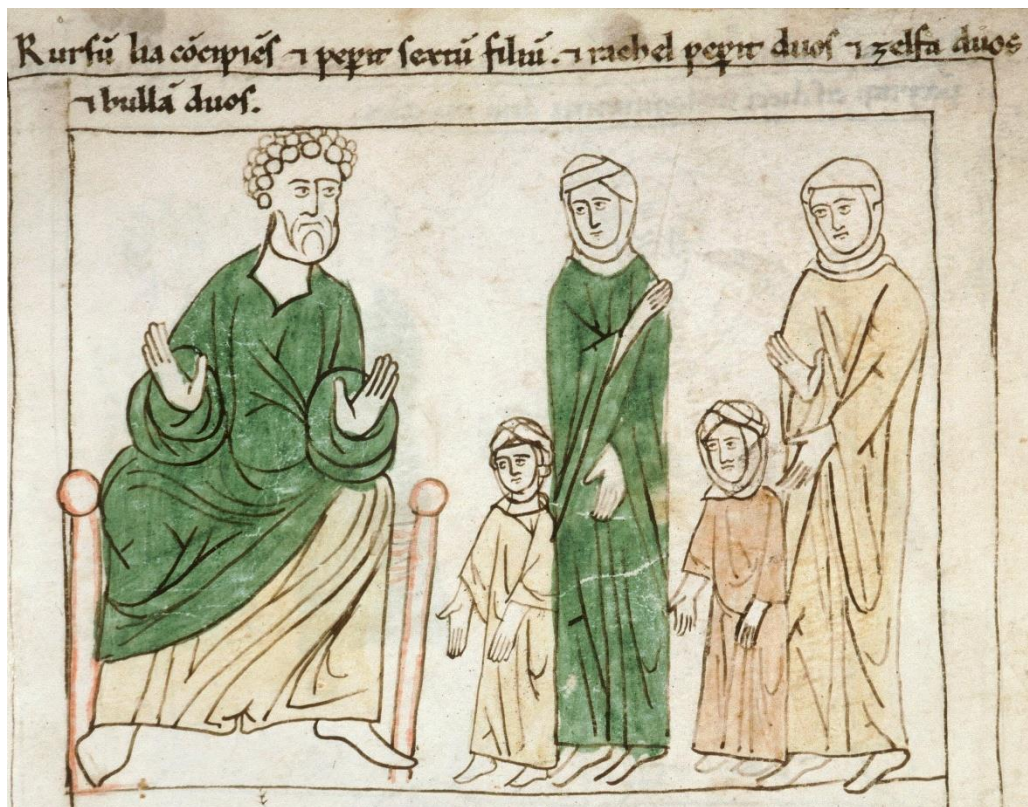 Rursū lia cōcipiēs ⁊ peꝑit sextū filiū. ⁊ rachel peꝑit duos ⁊ zelfa duos
⁊ bullā duos.